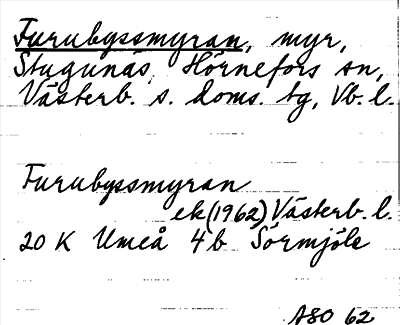 Furubyssmyran, myr,
Stugunäs, Hörnefors sn,
Västerb. s. doms. tg, Vb. l.
Furubyssmyran
ek (1962) Västerb. l.
20 K Umeå 4b Sörmjöle
ASO 62